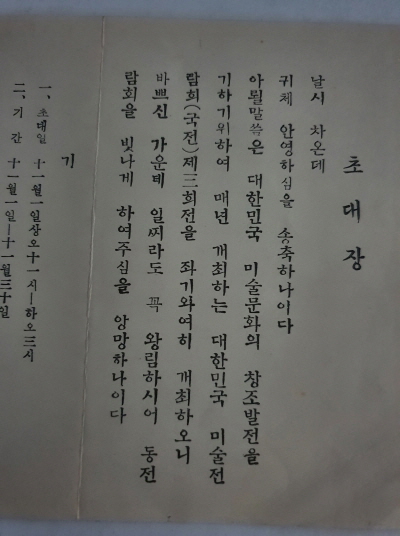 초대장
날시 차온데
귀체 안영하심을 송축하나이다
아뢸말씀은 대한민국 미술문화의 창조발전을
기하기위하여 매년 개최하는 대한민국 미술전
람회(국전)제三회전을 좌기와여히 개최하오니
바쁘신 가운데 일찌라도 꼭 왕림하시어 동전
람회을 빛나게 하여주심을 앙망하나이다
기
一、초대일 十一月一일상오十一시—하오三시
二、기간 十一月一일—十一月三十일